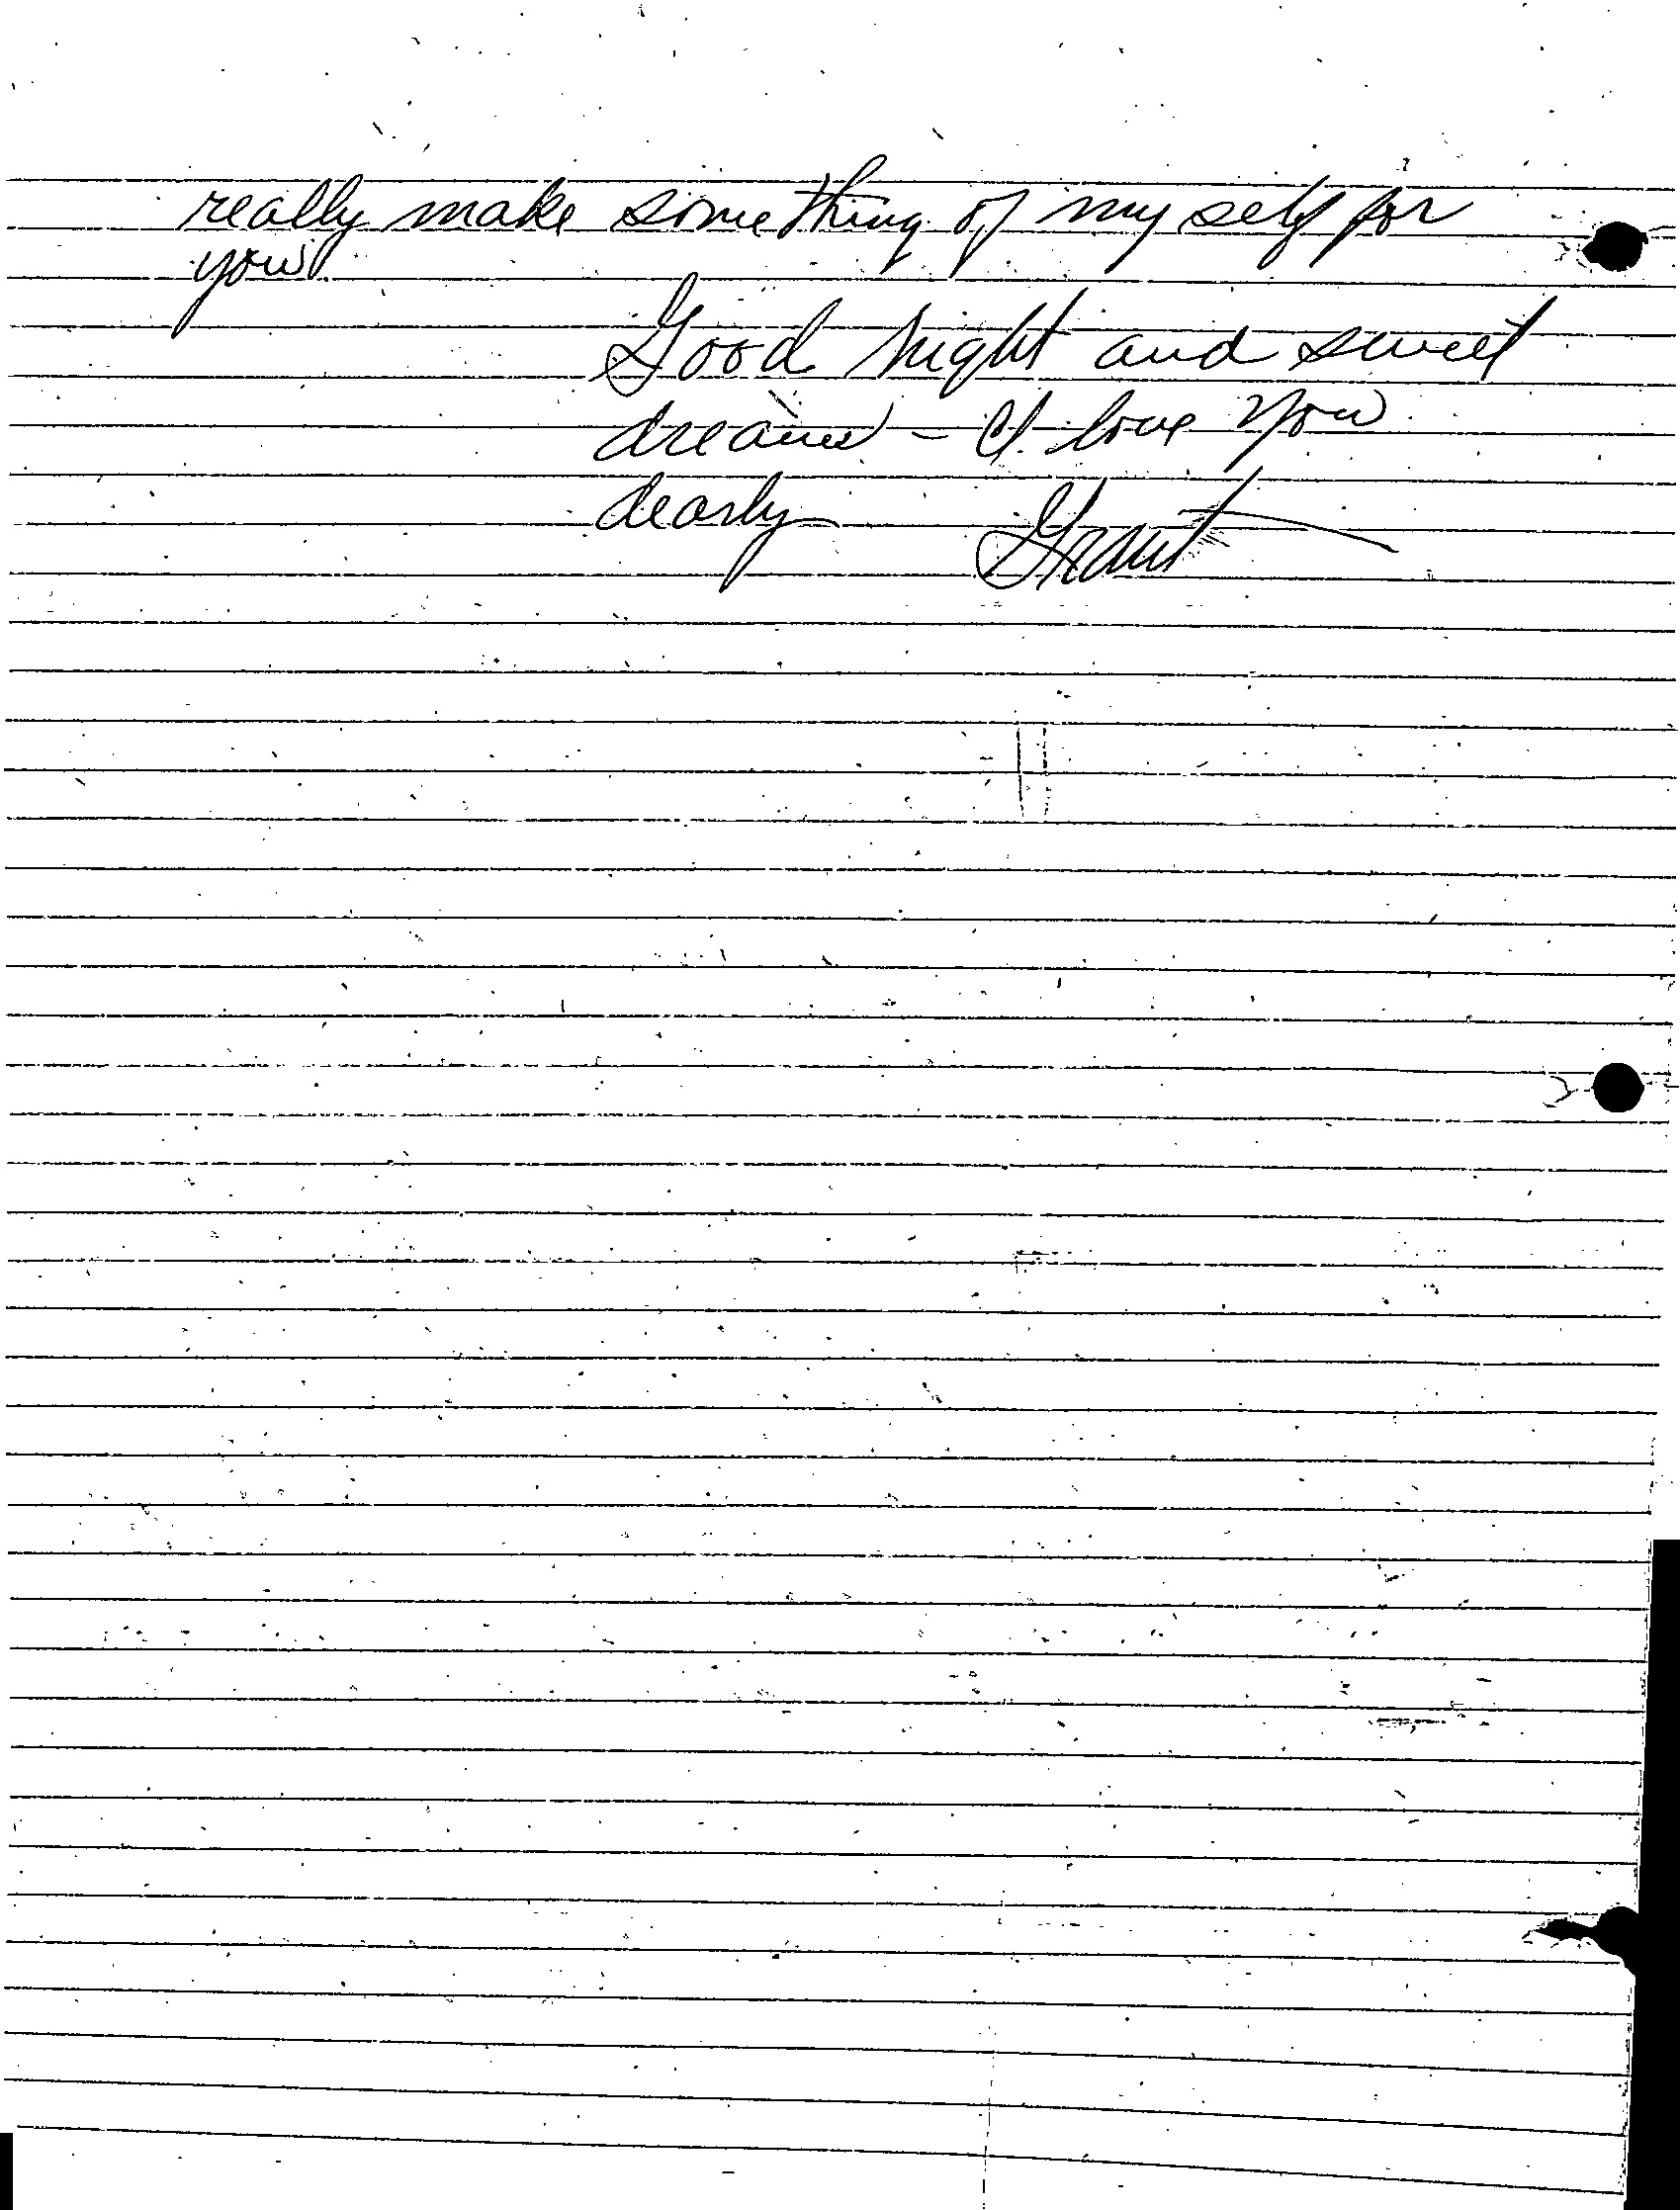 really make something of my self for
you.
Good night and sweet
dreams - I love you
dearly
Grant